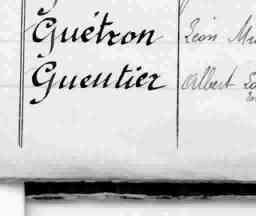 Guétron Léon
Gueutier Albert